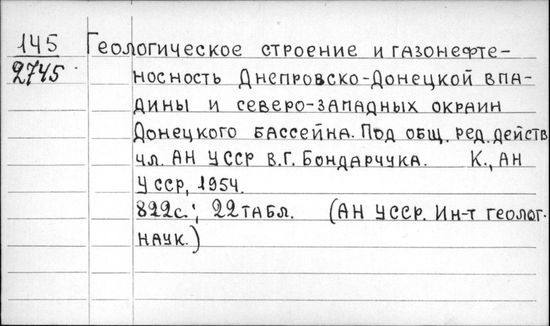 145 Геологическое строение и газонефте-
2745 носность Днепровско-Донецкой впа-
дины и северо-западных окраин
Донецкого бассейна. Под общ. ред. действ.
чл. АН УССР В.Г. Бондарчука. К., АН
УССР, 1954.
822с.; 22 табл. (АН УССР. Ин-т геолог.
наук.)